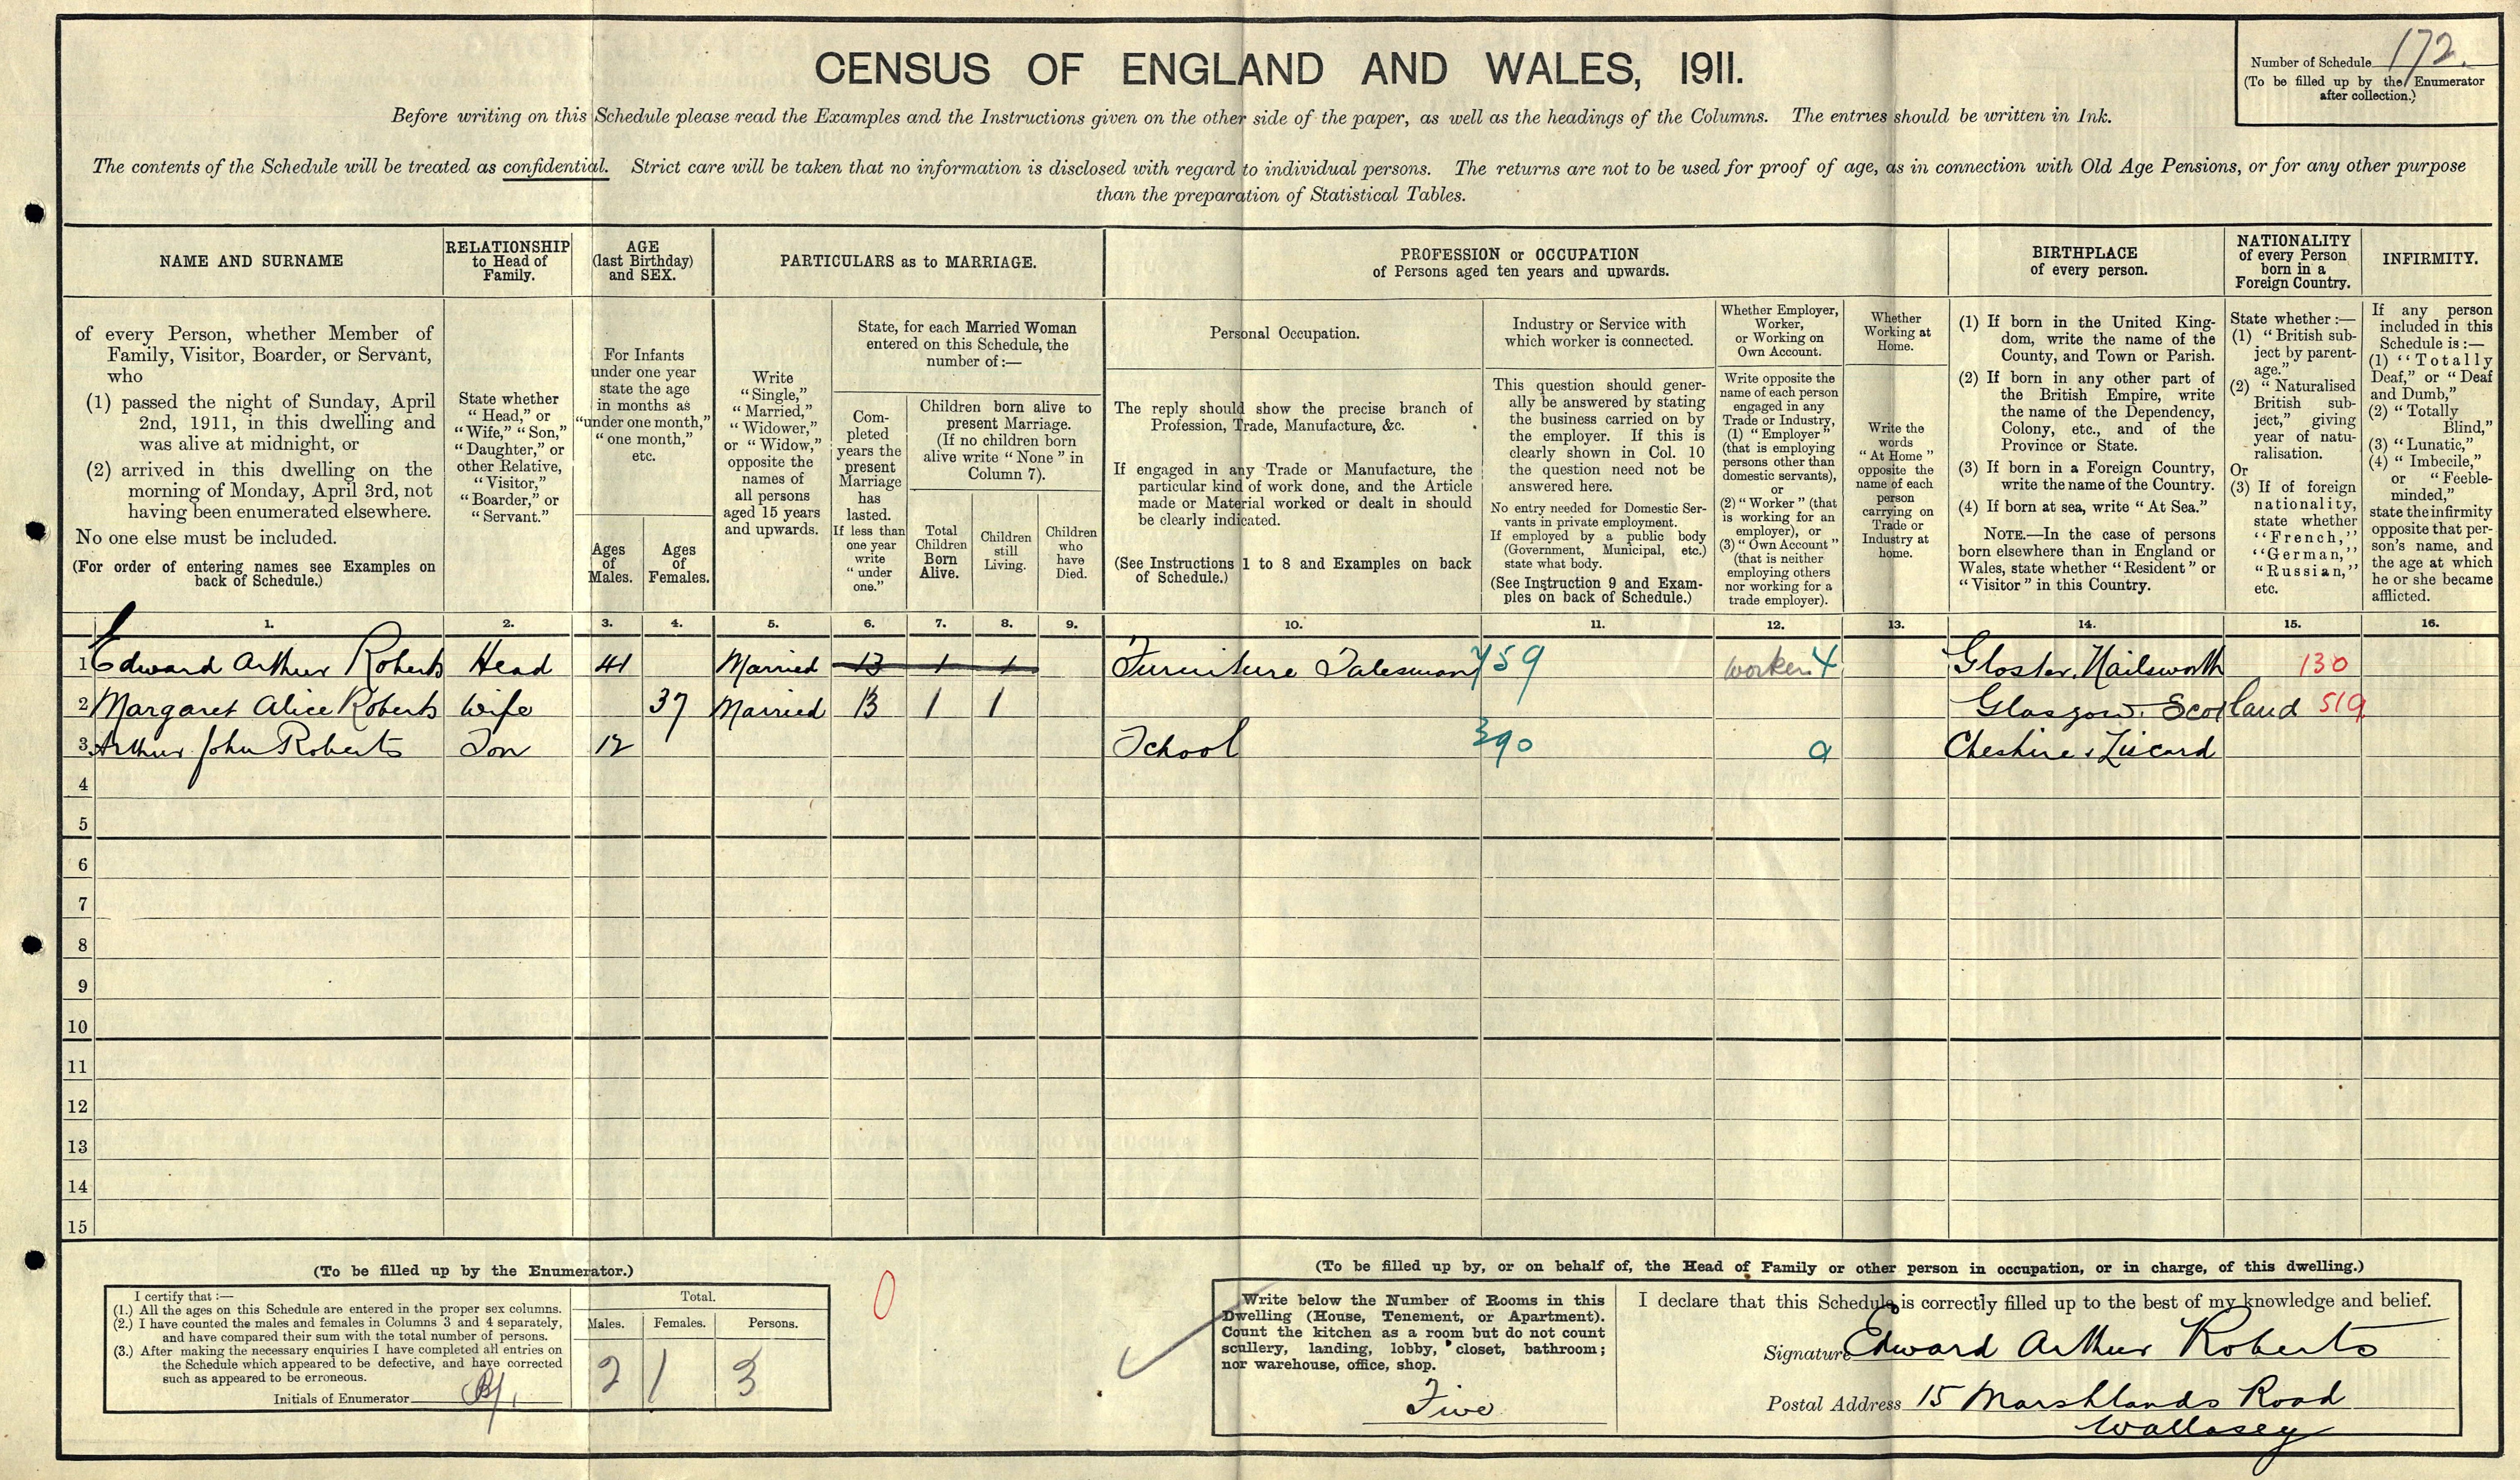 CENSUS OF ENGLAND AND WALES, 1911.
Number of Schedule 172.
(To be filled up by the Enumerator
after collection.)
Before writing on this Schedule please read the Examples and the Instructions given on the other side of the paper, as well as the headings of the Columns. The entries should be written in Ink.
The contents of the Schedule will be treated as confidential. Strict care will be taken that no information is disclosed with regard to individual persons. The returns are not to be used for proof of age, as in connection with Old Age Pensions, or for any other purpose
than the preparation of Statistical Tables.
NAME AND SURNAME
of every Person, whether Member of
Family, Visitor, Boarder, or Servant,
who
(1) passed the night of Sunday, April
2nd, 1911, in this dwelling and
was alive at midnight, or
(2) arrived in this dwelling on the
morning of Monday, April 3rd, not
having been enumerated elsewhere.
No one else must be included.
(For order of entering names see Examples on
back of Schedule.)
RELATIONSHIP
to Head of
Family.
State whether
"Head," or
"Wife," "Son,"
"Daughter," or
other Relative,
"Visitor,"
"Boarder," or
"Servant."
AGE
(last Birthday)
and SEX.
For Infants
under one year
state the age
in months as
"under one month,"
"one month,"
etc.
Ages
of
Males.
Ages
of
Females.
PARTICULARS as to MARRIAGE.
Write
"Single,"
"Married,"
"Widower,"
or "Widow,"
opposite the
names of
all persons
aged 15 years
and upwards.
State, for each Married Woman
entered on this Schedule, the
number of:—
Com-
pleted
years the
present
Marriage
has
lasted.
If less than
one year
write
"under
one."
Children born alive to
present Marriage.
(If no children born
alive write "None" in
Column 7).
Total
Children
Born
Alive.
Children
still
Living.
Children
who
have
Died.
PROFESSION or OCCUPATION
of Persons aged ten years and upwards.
Personal Occupation.
The reply should show the precise branch of
Profession, Trade, Manufacture, &c.
If engaged in any Trade or Manufacture, the
particular kind of work done, and the Article
made or Material worked or dealt in should
be clearly indicated.
(See Instructions 1 to 8 and Examples on back
of Schedule.)
Industry or Service with
which worker is connected.
This question should gener-
ally be answered by stating
the business carried on by
the employer. If this is
clearly shown in Col. 10
the question need not be
answered here.
No entry needed for Domestic Ser-
vants in private employment.
If employed by a public body
(Government, Municipal, etc.)
state what body.
(See Instruction 9 and Exam-
ples on back of Schedule.)
Whether Employer,
Worker,
or Working on
Own Account.
Write opposite the
name of each person
engaged in any
Trade or Industry,
(1) "Employer"
(that is employing
persons other than
domestic servants),
or
(2) "Worker" (that
is working for an
employer), or
(3) "Own Account"
(that is neither
employing others
nor working for a
trade employer).
Whether
Working at
Home.
Write the
words
"At Home"
opposite the
name of each
person
carrying on
Trade or
Industry at
home.
BIRTHPLACE
of every person.
(1) If born in the United King-
dom, write the name of the
County, and Town or Parish.
(2) If born in any other part of
the British Empire, write
the name of the Dependency,
Colony, etc., and of the
Province or State.
(3) If born in a Foreign Country,
write the name of the Country.
(4) If born at sea, write "At Sea."
NOTE.—In the case of persons
born elsewhere than in England or
Wales, state whether "Resident" or
"Visitor" in this Country.
NATIONALITY
of every Person
born in a
Foreign Country.
State whether:—
(1) "British sub-
ject by parent-
age."
(2) "Naturalised
British sub-
ject," giving
year of natu-
ralisation.
Or
(3) If of foreign
nationality,
state whether
"French,"
"German,"
"Russian,"
etc.
INFIRMITY.
If any person
included in this
Schedule is:—
(1) "Totally
Deaf," or "Deaf
and Dumb,"
(2) "Totally
Blind,"
(3) "Lunatic,"
(4) "Imbecile,"
or "Feeble-
minded,"
state the infirmity
opposite that per-
son's name, and
the age at which
he or she became
afflicted.
1. 2. 3. 4. 5. 6. 7. 8. 9. 10. 11. 12. 13. 14. 15. 16.
1 Edward Arthur Roberts Head 41 Married 13 1 1 Furniture Salesman 759 worker 4 Gloster. Nailsworth 130
2 Margaret Alice Roberts Wife 37 Married 13 1 1 Glasgow. Scotland 519
3 Arthur John Roberts Son 12 School 390 a Cheshire, Liscard
4
5
6
7
8
9
10
11
12
13
14
15
(To be filled up by the Enumerator.)
I certify that:—
(1.) All the ages on this Schedule are entered in the proper sex columns.
(2.) I have counted the males and females in Columns 3 and 4 separately,
and have compared their sum with the total number of persons.
(3.) After making the necessary enquiries I have completed all entries on
the Schedule which appeared to be defective, and have corrected
such as appeared to be erroneous.
Initials of Enumerator
Total.
Males. Females. Persons.
2 1 3
0
(To be filled up by, or on behalf of, the Head of Family or other person in occupation, or in charge, of this dwelling.)
Write below the Number of Rooms in this
Dwelling (House, Tenement, or Apartment).
Count the kitchen as a room but do not count
scullery, landing, lobby, closet, bathroom;
nor warehouse, office, shop.
Five
I declare that this Schedule is correctly filled up to the best of my knowledge and belief.
Signature Edward Arthur Roberts
Postal Address 15 Marshlands Road
Wallasey